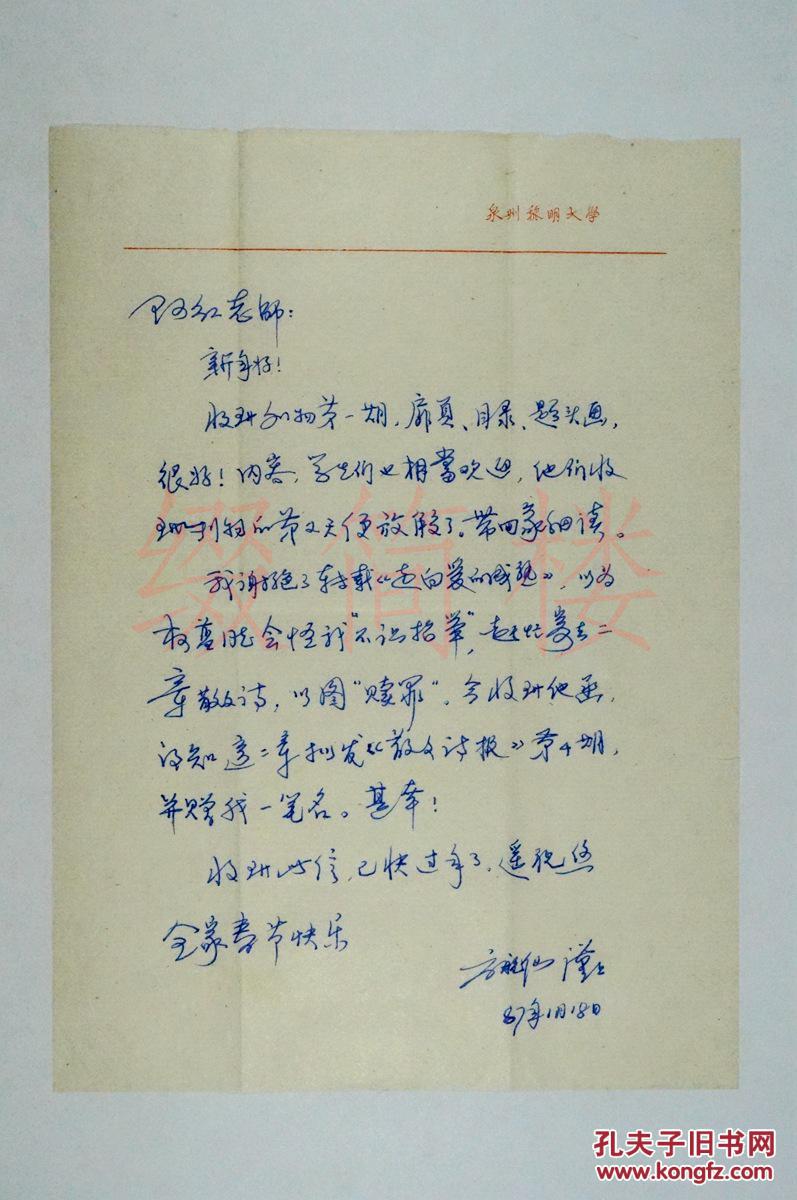 泉州黎明大学
阿红老师:
新年好!
收到刊物第一期,扉页、目录、题头画,
很好!内容,学生们也相当欢迎,他们收
到刊物的第2天便放假了。带回家细读。
我谢绝了转载《走向爱的成熟》,以为
会怪我“不识抬举”,赶忙寄去二
章散文诗,以图“赎罪”。今收到他函,
得知这二章拟发《散文诗报》第4期,
并赠我一笔名。甚幸!
收到此信,已快过年了,遥祝您
全家春节快乐
方航仙 谨上
87年1月18日
缀简楼
孔夫子旧书网
www.kongfz.com